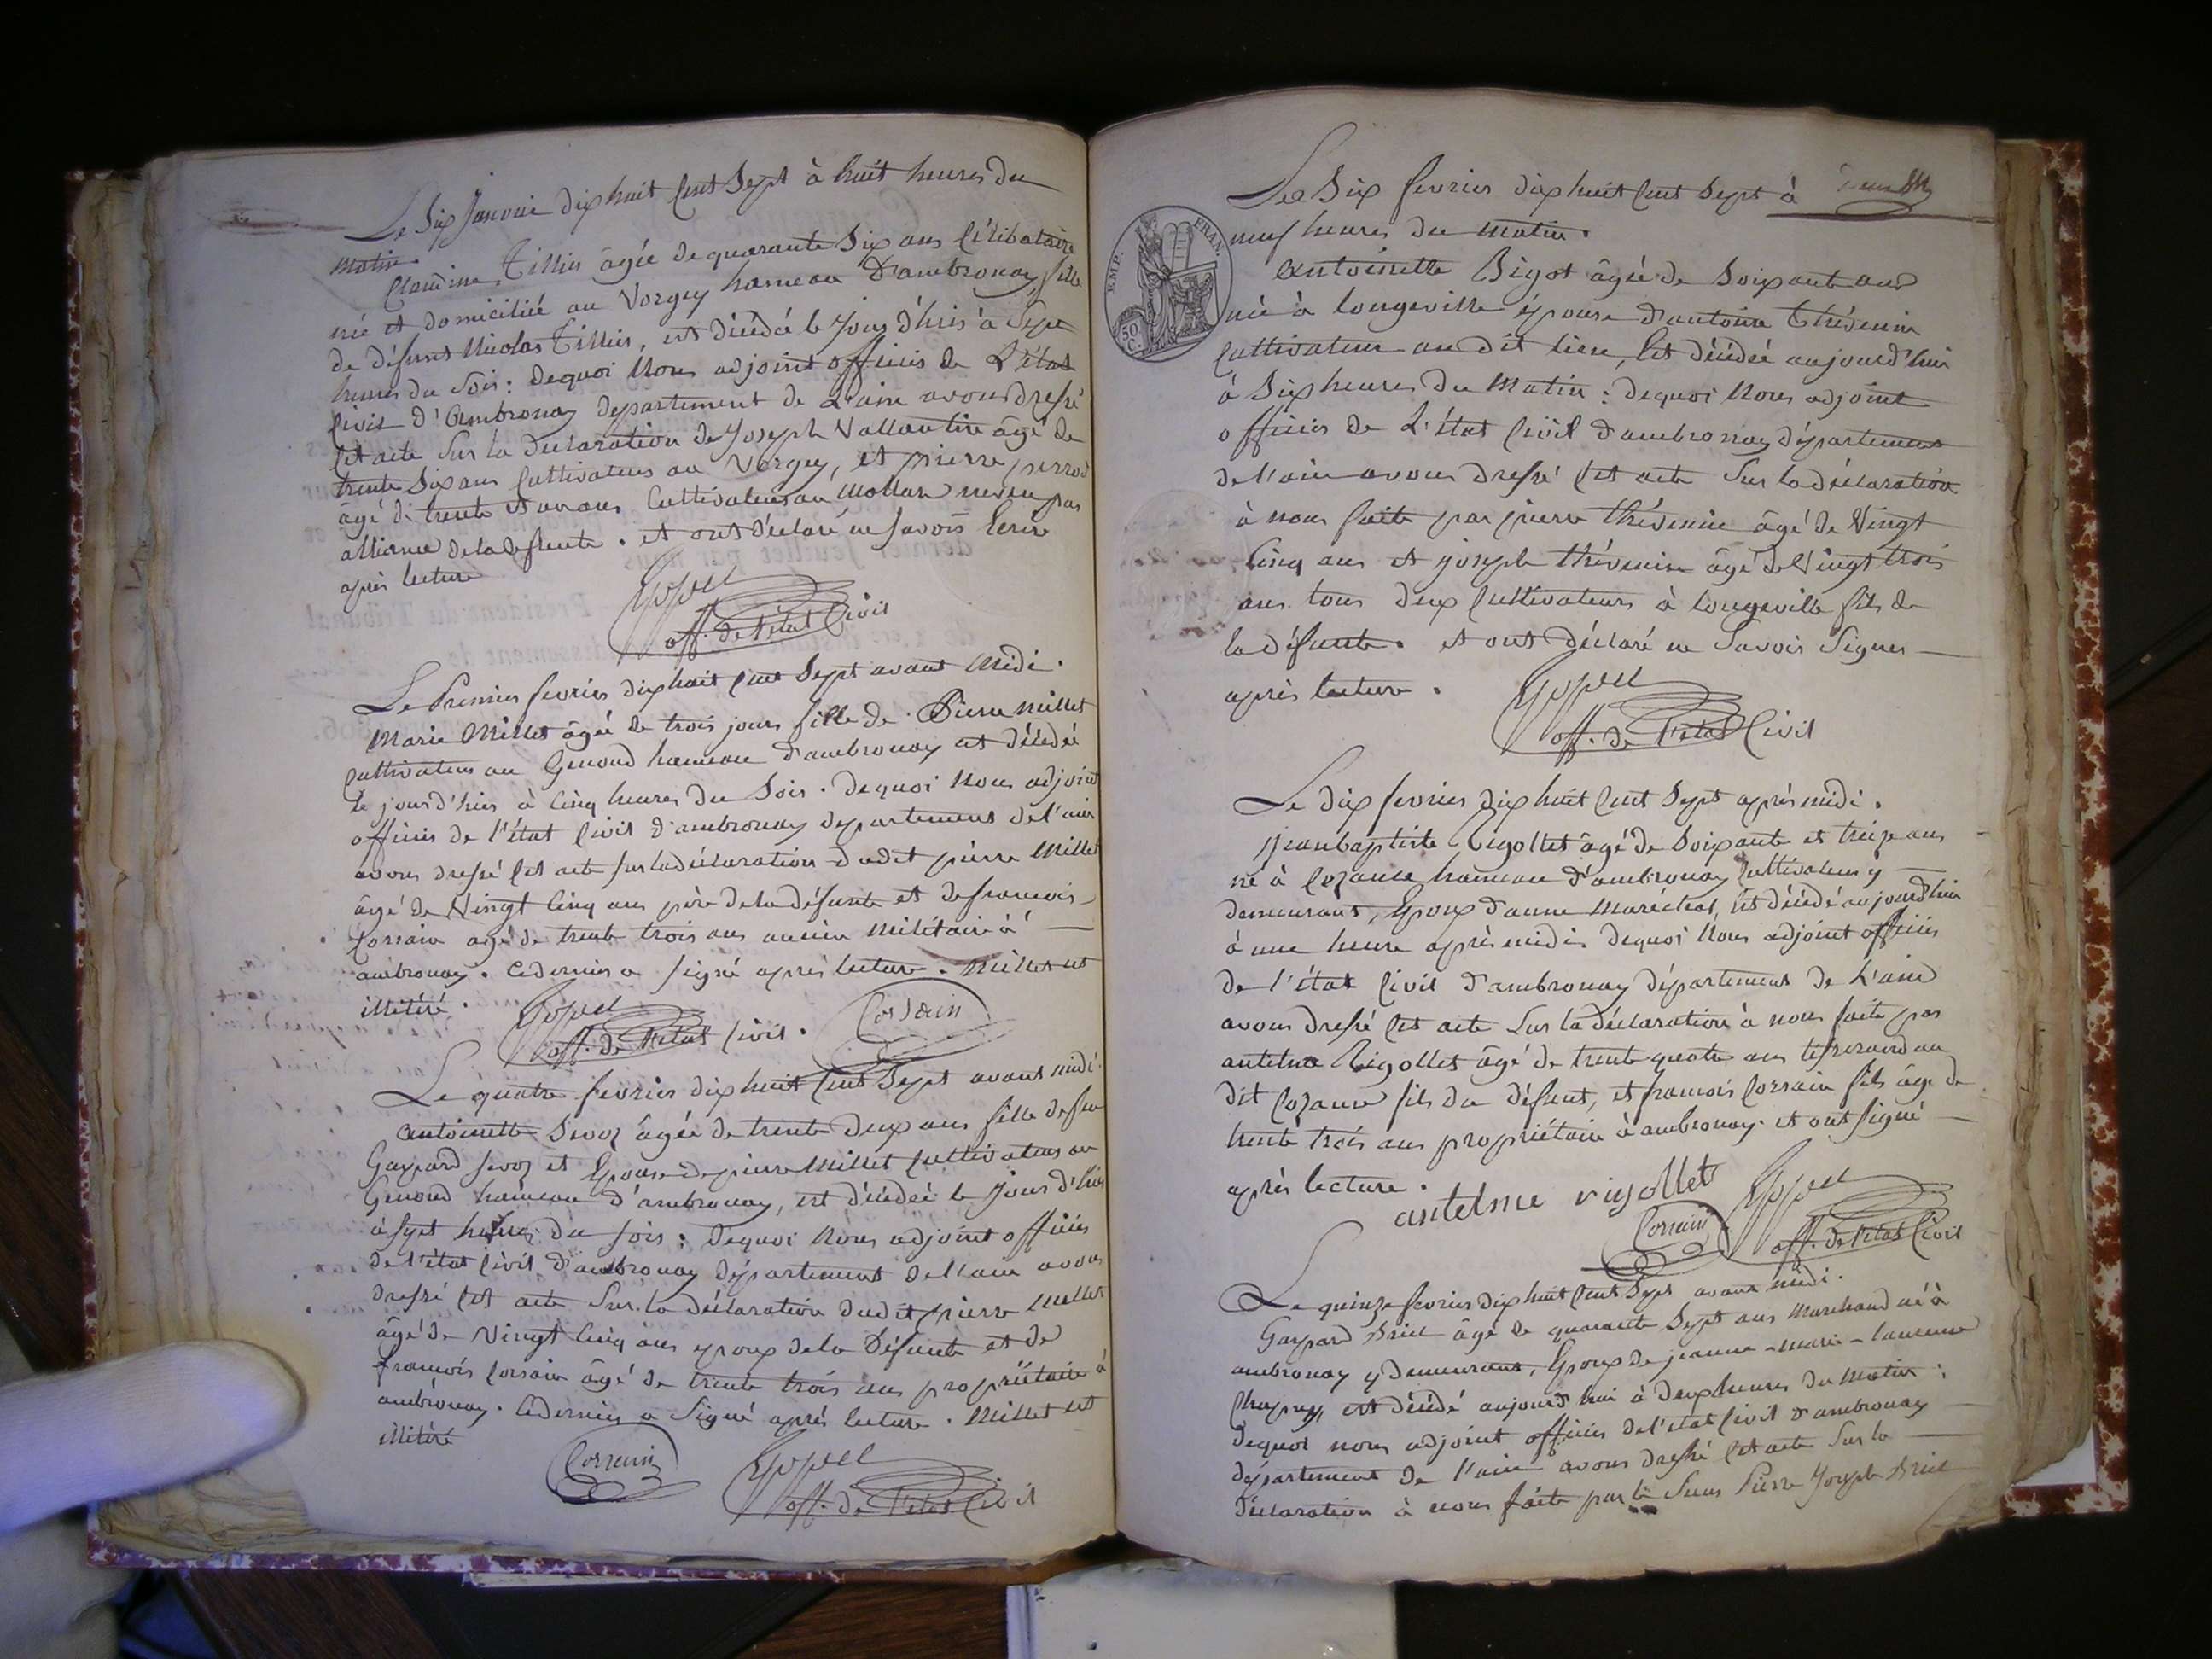 Le Six Janvier dix huit Cent Sept à huit heures du
matin.
Claudine Tillier âgée de quarante Six ans Célibataire
née et domiciliée au Vorgey hameau D'ambronay fille
de défunt Nicolas Tillier, est décédée le Jour d'hier à Sept
heures du Soir : Dequoi Nous adjoint officier de L'état
Civil d'Ambronay département de L'ain avons dressé
Cet acte Sur la declaration de Joseph Vallantin âgé de
trente Six ans Cultivateur au Vorgey, et pierre perrod
âgé de trente et un ans Cultivateur au Mollard neveu par
alliance de la defunte. et ont déclaré ne Savoir Ecrire
après lecture
off. de l'état Civil
Le Premier fevrier dix huit Cent Sept avant Midi.
Marie Millet âgée de trois jours fille de Pierre Millet
Cultivateur au Genoud hameau d'ambronay est décédée
le jour d'hier à Cinq heures du Soir. Dequoi Nous adjoint
officier de l'état Civil d'ambronay departement de l'ain
avons dressé Cet acte sur la déclaration dudit pierre Millet
âgé de Vingt Cinq ans père de la défunte et de francois
Corrain agé de trente trois ans ancien Militaire à
ambronay. Ce dernier a signé après lecture. Millet est
illitéré.
off. de l'état Civil. Corrain
Le quatre fevrier dix huit Cent Sept avant midi.
antoinette Sevoz agée de trente Deux ans fille de feu
Gaspard Sevoz et Epouse de pierre Millet Cultivateur au
Genoud hameau d'ambronay, est décédée le Jour d'hier
à Sept heures du soir : Dequoi Nous adjoint officier
de l'état Civil d'ambronay département de l'ain avons
dressé Cet acte Sur la déclaration dudit pierre Millet
âgé de Vingt Cinq ans epoux de la Défunte et de
francois Corrain âgé de trente trois ans propriétaire à
ambronay. Ce dernier a Signé après lecture. Millet est
illitéré
Corrain off. de l'état Civil
Le Six fevrier dix huit Cent Sept à
neuf heures du matin.
EMP. FRAN.
50 C.
Antoinette Bigot âgée de Soixante ans
née à longeville épouse d'antoine Thévenin
Cultivateur au dit lieu, Est décédée aujourd'hui
à Six heures du Matin : Dequoi Nous adjoint
officier de L'état Civil d'ambronay département
de l'ain avons dressé Cet acte Sur la déclaration
à nous faite par pierre thévenin âgé de Vingt
Cinq ans et joseph thévenin âgé de Vingt trois
ans tous deux Cultivateurs à longeville fils de
la défunte. et ont déclaré ne Savoir Signer
après lecture.
off. de l'état Civil
Le dix fevrier dix huit Cent Sept après midi.
Jean baptiste Rigollet âgé de Soixante et treize ans
né à Cozance hameau d'ambronay Cultivateur y
demeurant, Epoux d'anne Maréchal, Est décédé aujourd'hui
à une heure après midi. Dequoi Nous adjoint officier
de l'état Civil d'ambronay département de L'ain
avons dressé Cet acte Sur la déclaration à nous faite par
antelme Rigollet âgé de trente quatre ans tisserand au
dit Cozance fils du défunt, et francois Corrain fils âgé de
trente trois ans propriétaire à ambronay. et ont signé
après lecture.
antelme rigollet
Corrain off. de l'état Civil
Le quinze fevrier dix huit Cent Sept avant midi.
Gaspard Briel âgé de quarante Sept ans Marchand né à
ambronay y demeurant, Epoux de jeanne-marie-laurence
est décédé aujourd'hui à deux heures du Matin :
Dequoi nous adjoint officier de l'état Civil d'ambronay
département de l'ain avons dressé Cet acte Sur la
déclaration à nous faite par le Sieur Pierre Joseph Briel